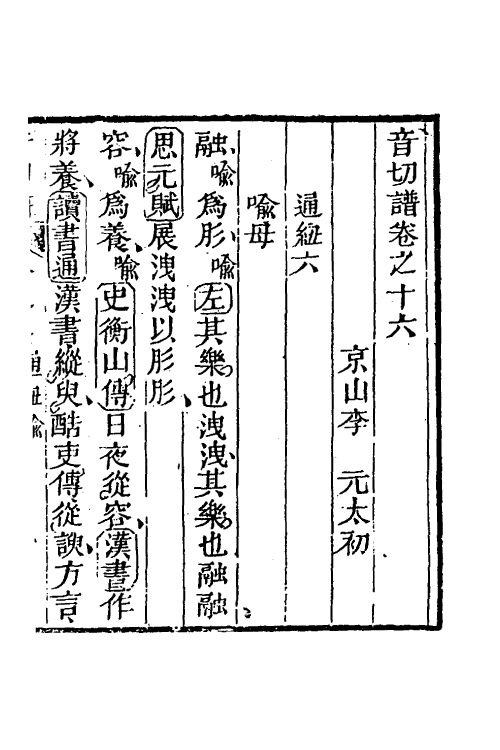 音切譜卷之十六
京山李 元太初
通紐六
喻母
融喻爲肜喻左其樂也洩洩其樂也融融
思元賦展洩洩以肜肜
容喻爲養喻史衡山傳日夜從容漢書作
將養讀書通漢書縱臾酷吏傳從諛方言
通紐喻